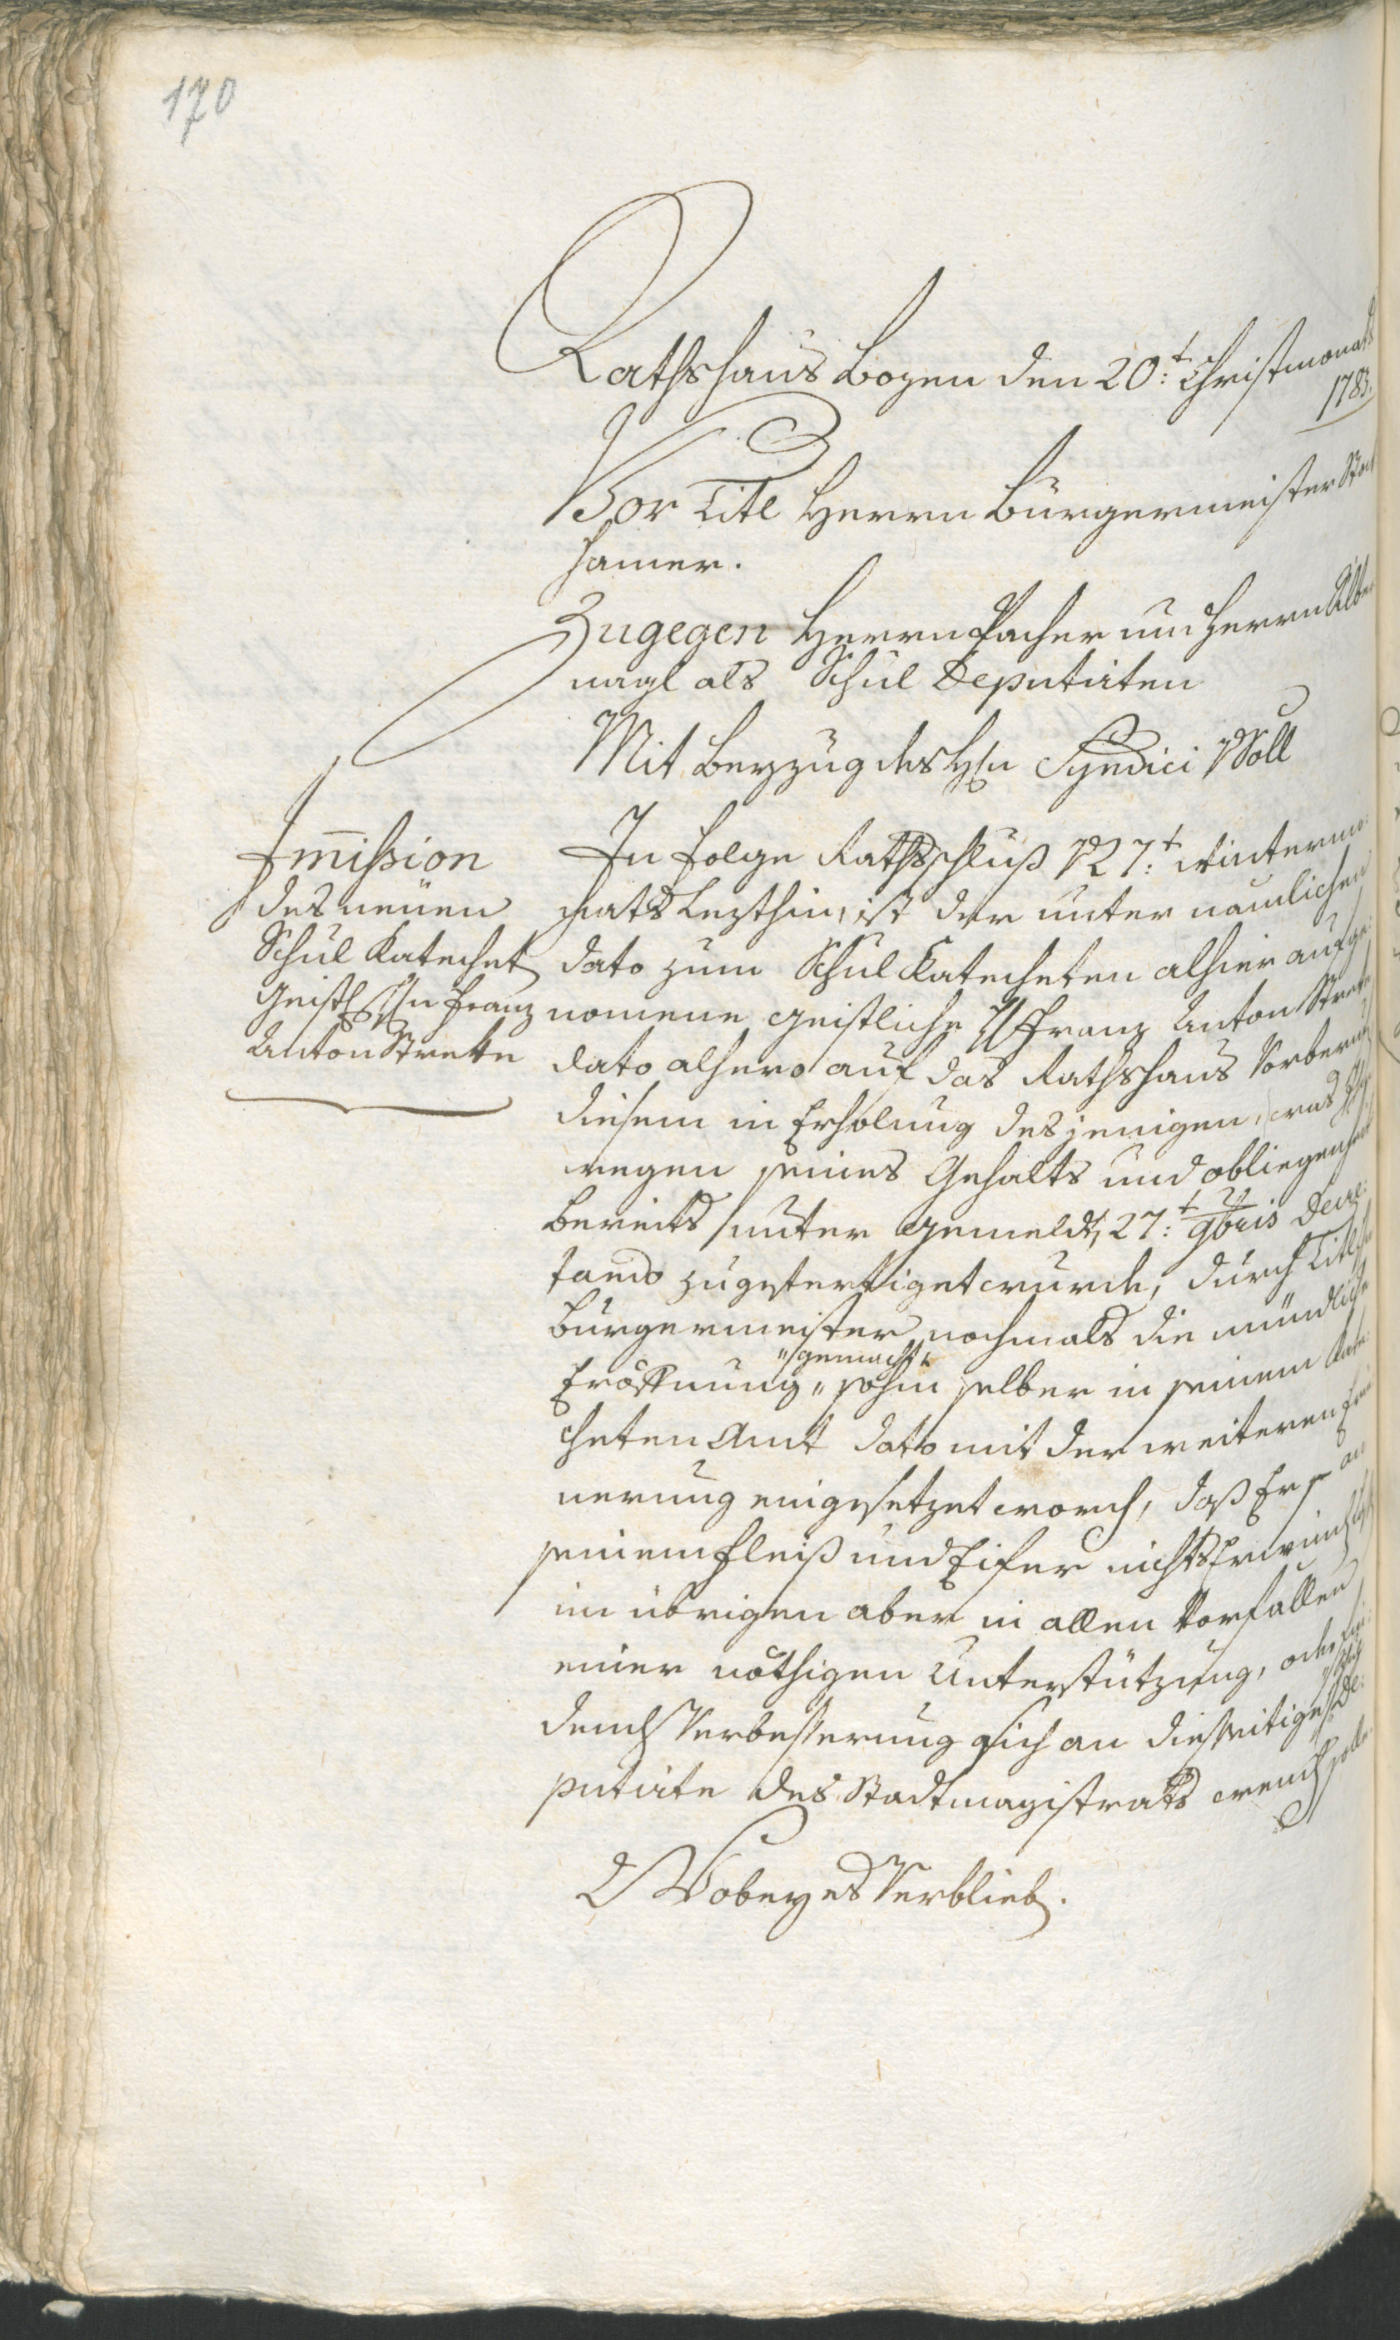 170
Rathshaus Bozen den 20:t Christmonats
1783.
Vor Titl Herrn Bürgermeister Stock
hamer.
Zugegen Herrn Pacher und Herrn Alber
nagl als Schul Deputirten
Mit Beyzug des Hℓn Syndici v Söll
Im̄ission
des neuen
Schul Katechet
Geistl Hℓn Franz
Anton Strette
In Folge Rathsschluß v 27:t Winterm̄o
nats lezthin, ist der unter nämlichen
dato zum Schul Katecheten alhier aufge
nomene geistliche H Franz Anton Strette
dato alhero auf das Rathshaus Vorberuf
diesem in Erholung desjenigen, was
wegen seines Gehalts und obliegenheit
bereits unter gemeldt 27:t 9bris Decre
tando zugefertiget wurde, durch Titl
Bürgermeister nochmals die mündliche
Eröffnung "gemacht" sohin selber in seinem Kate
cheten Amt dato mit der weiteren Erin
nerung eingesetzet word, daß Er an
seinem Fleiß und Eifer nichts Erwind
im übrigen aber in allen Vorfällen
einer nöthigen Unterstützung, oder
dend Verbesserung sich an diesseitige De
putirte des Stadtmagistrats wend solle
Wobey es Verblieb.